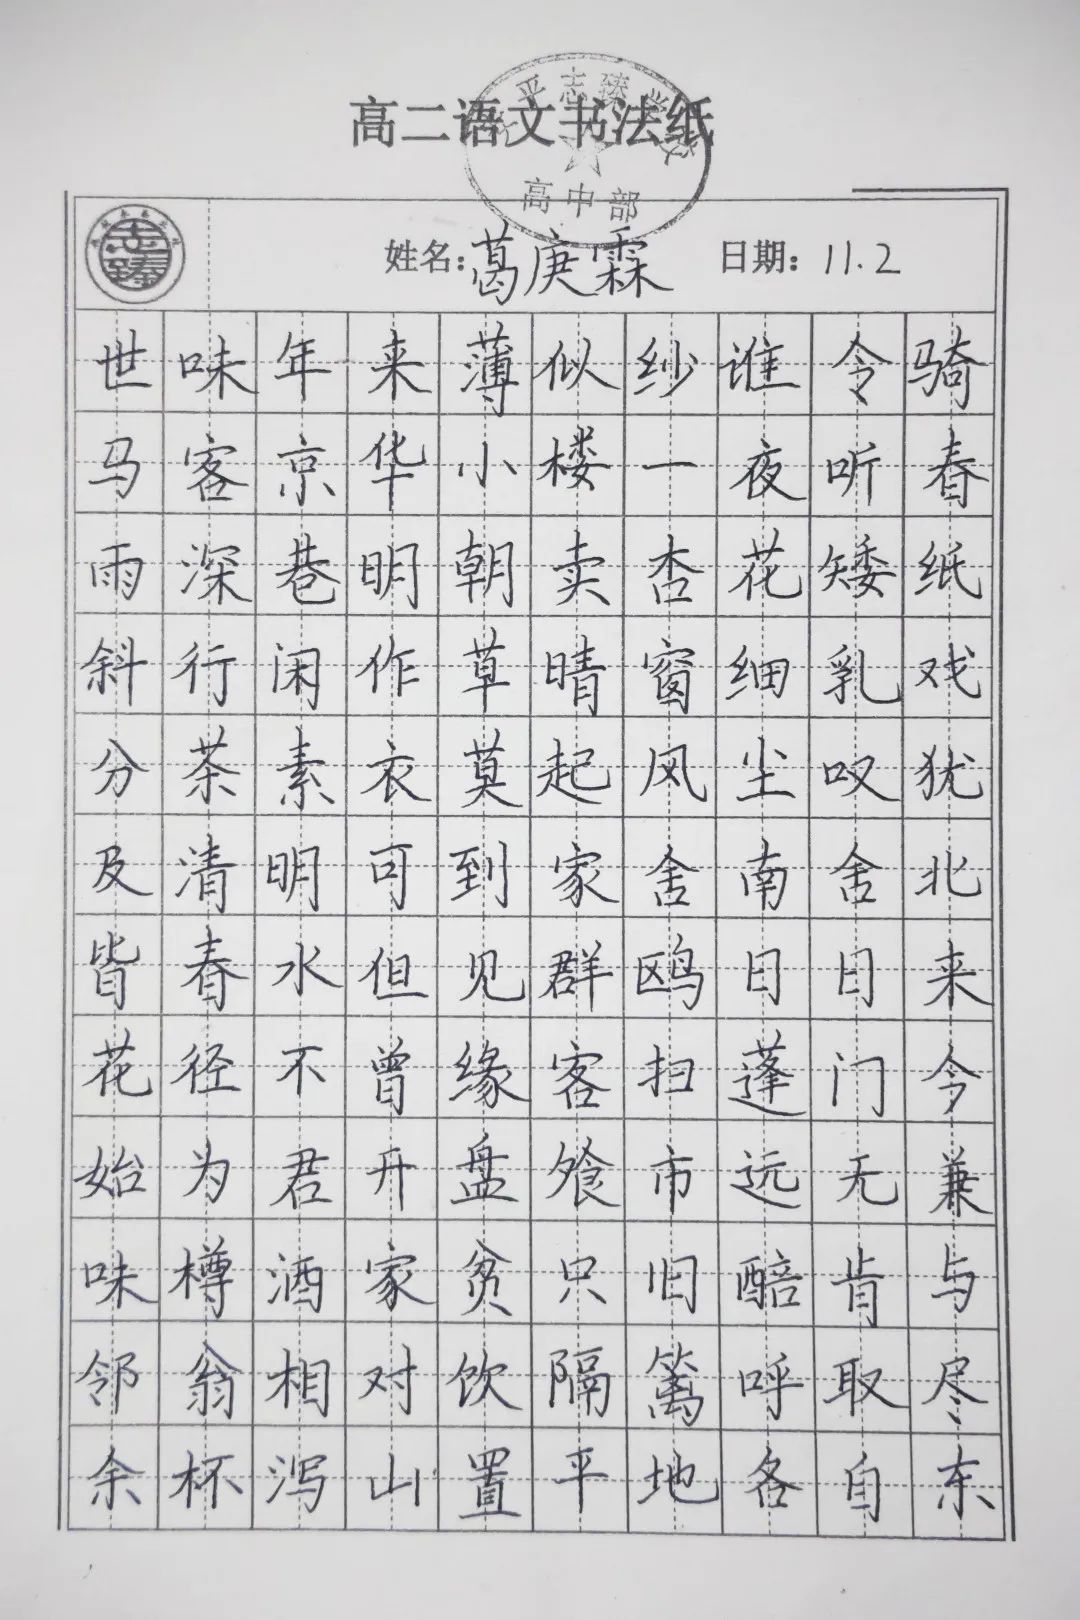 高二语文书法纸
高中部
姓名：葛庚霖 日期：11.2
世味年来薄似纱谁令骑
马客京华小楼一夜听春
雨深巷明朝卖杏花矮纸
斜行闲作草晴窗细乳戏
分茶素衣莫起风尘叹犹
及清明可到家舍南舍北
皆春水但见群鸥日日来
花径不曾缘客扫蓬门今
始为君开盘飧市远无兼
味樽酒家贫只旧醅肯与
邻翁相对饮隔篱呼取尽
余杯泻山置平地各自东